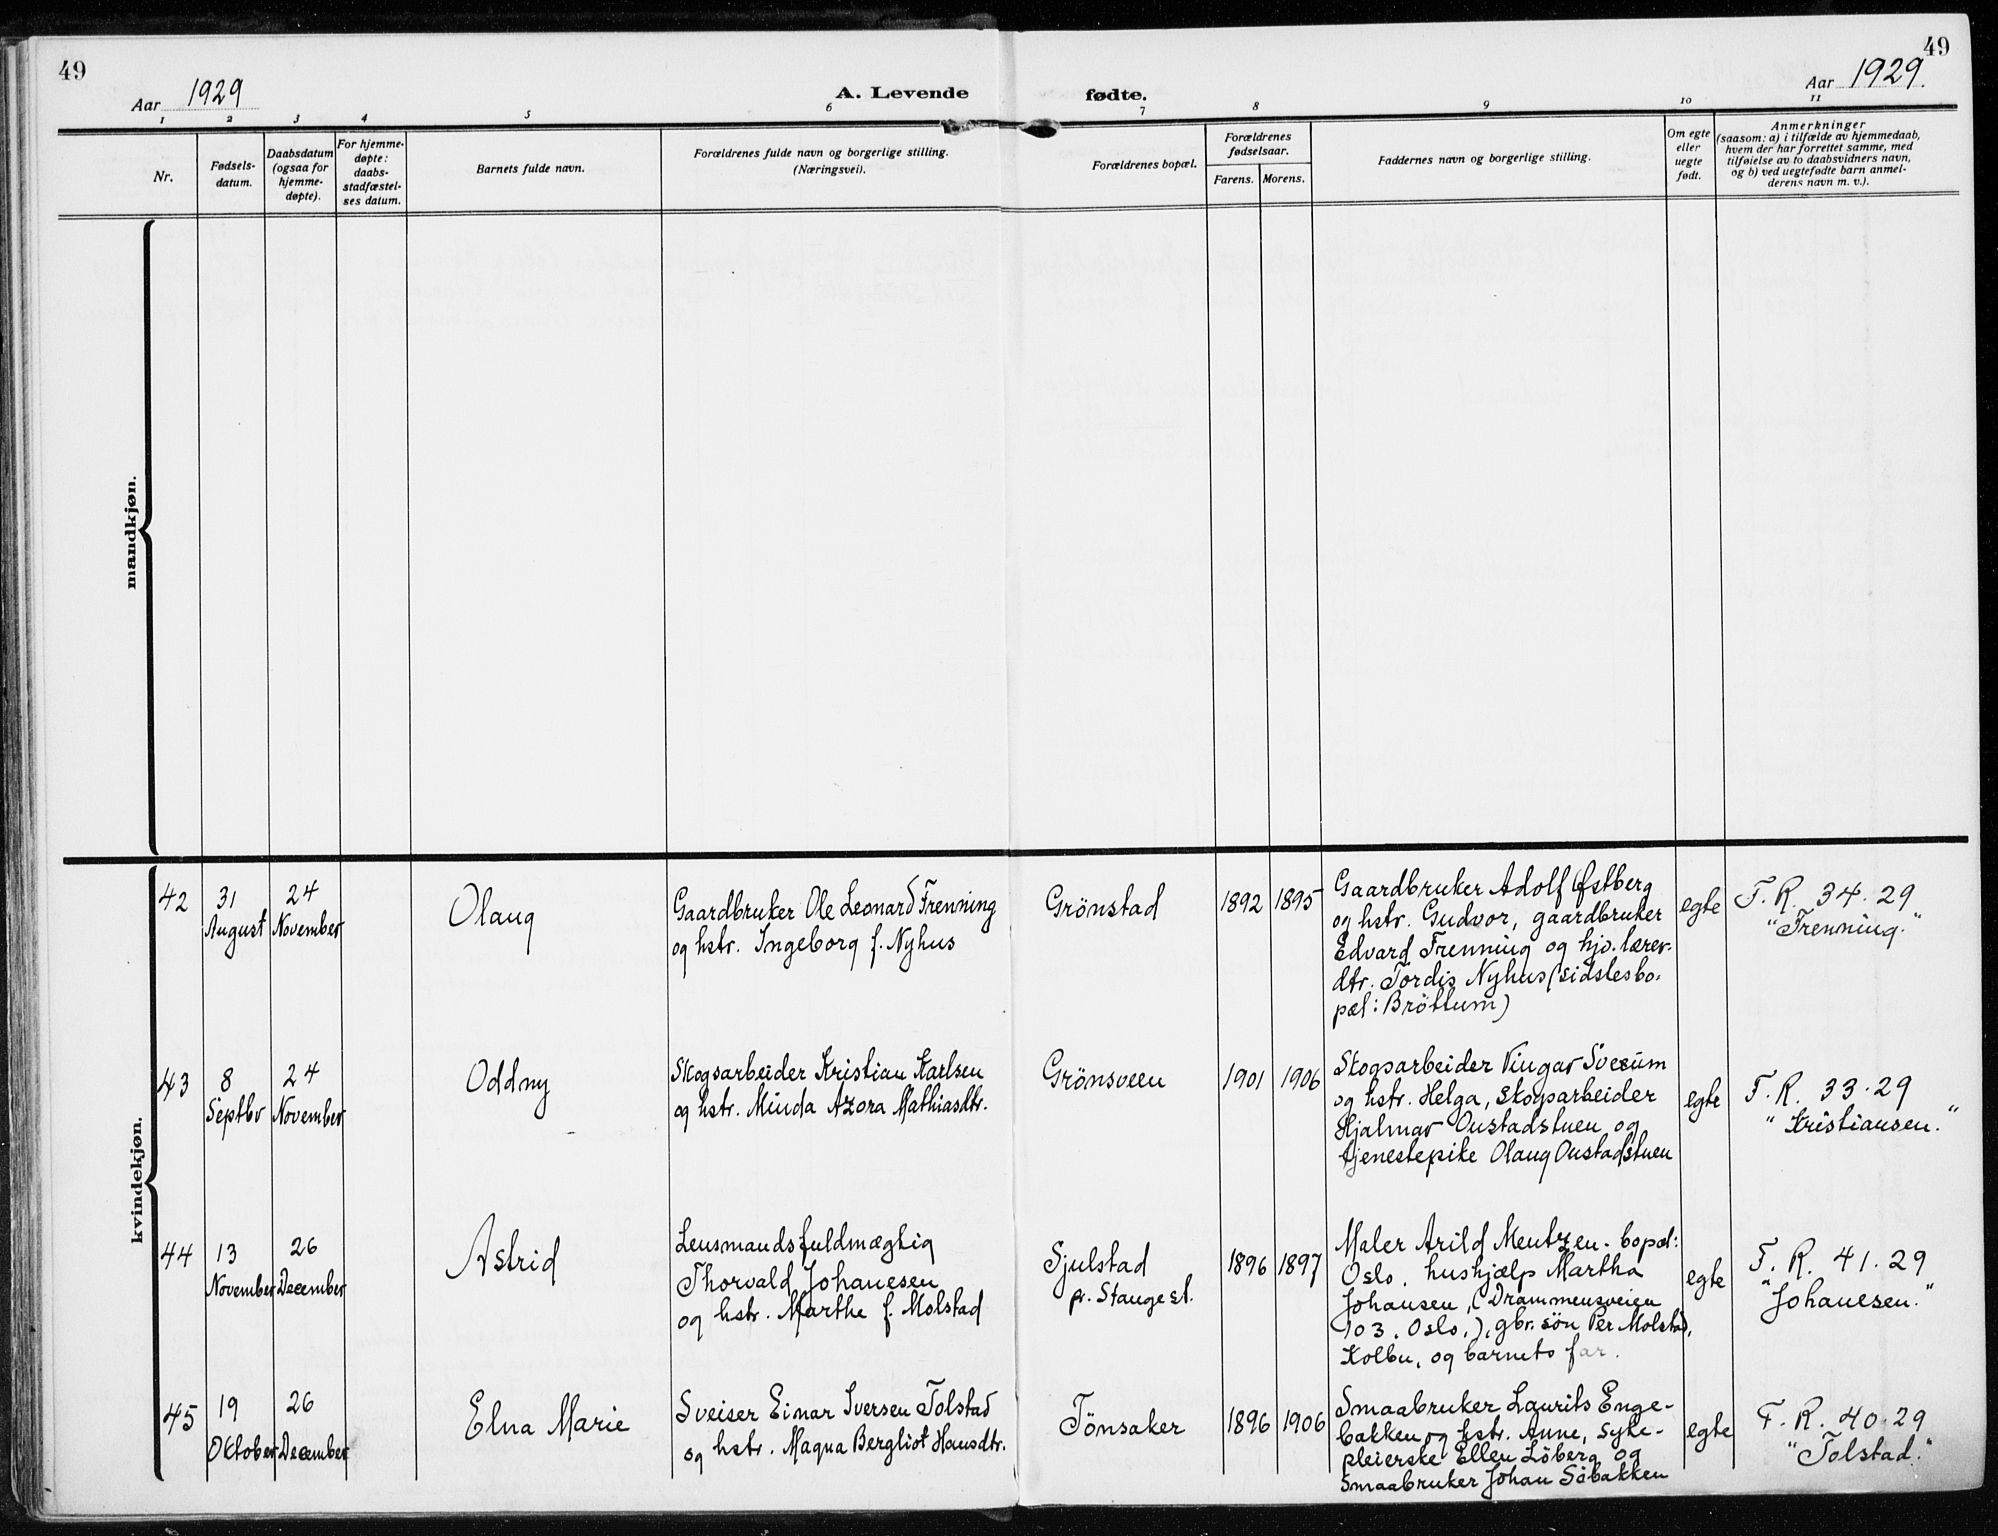 49
49
Aar 1929
A. Levende fødte.
Aar 1929.
1 2 3 4 5 6 7 8 9 10 11
Nr.
Fødsels-
datum.
Daabsdatum
(ogsaa for
hjemme-
døpte).
For hjemme-
døpte:
daabs-
stadfæstel-
ses datum.
Barnets fulde navn.
Forældrenes fulde navn og borgerlige stilling.
(Næringsvei).
Forældrenes bopæl.
Forældrenes
fødselsaar.
Farens. Morens.
Faddernes navn og borgerlige stilling.
Om egte
eller
uegte
født.
Anmerkninger
(saasom: a) i tilfælde av hjemmedaab,
hvem der har forrettet samme, med
tilføielse av to daabsvidners navn,
og b) ved uegtefødte barn anmel-
derens navn m. v.).
mandkjøn.
kvindekjøn.
42
31
August
24
November
Olaug
Gaardbruker Ole Leonard Frenning
og hstr. Ingeborg f. Nyhus
Grönstad
1892
1895
Gaardbruker Adolf Østberg
og hstr. Gudvor, gaardbruker
Edvard Frenning og hjv. lærer-
dtr. Tordis Nyhus (sidstes bo-
pæl: Bröttum)
egte
F. R. 34. 29
"Frenning."
43
8
Septbr
24
November
Oddny
Skogsarbeider Kristian Karlsen
og hstr. Minda Azora Mathiasdtr.
Grönsveen
1901
1906
Skogsarbeider Vingar Sveum
og hstr. Helga, skogsarbeider
Hjalmar Oustadstuen og
tjenestepike Olaug Oustadstuen
egte
F. R. 33. 29
"Kristiansen."
44
13
November
26
December
Astrid
Lensmandsfuldmægtig
Thorvald Johanesen
og hstr. Marthe f. Molstad
Sjulstad
pr. Stange st.
1896
1897
Maler Arild Mentzen. bopæl:
Oslo. hushjælp Martha
Johansen, (Drammensveien
103. Oslo.), gbr. søn Per Molstad,
Kolbu, og barnets far.
egte
F. R. 41. 29
"Johanesen."
45
19
Oktober
26
December
Elna Marie
Sveiser Einar Iversen Tolstad
og hstr. Magna Bergliot Hansdtr.
Tönsaker
1896
1906
Smaabruker Laurits Enge-
bakken og hstr. Anne, syke-
pleierske Ellen Löberg og
Smaabruker Johan Söbakken
egte
F. R. 40. 29
"Tolstad."